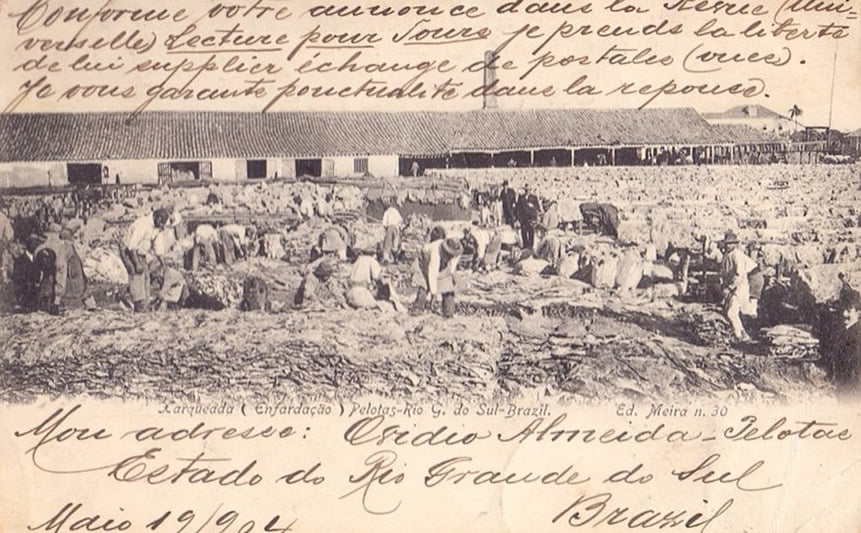 Conforme votre annonce dans la Revue (Uni-
verselle) Lecture pour Tours je prends la liberté
de lui supplier échange de postales (vues).
Je vous garante ponctualité dans la reponse.
Xarqueada ( Enfardação ) Pelotas-Rio G. do Sul-Brazil. Ed. Meira n. 30
Mon adresse: Ovidio Almeida - Pelotas
Estado do Rio Grande do Sul
Maio 19/904 Brazil